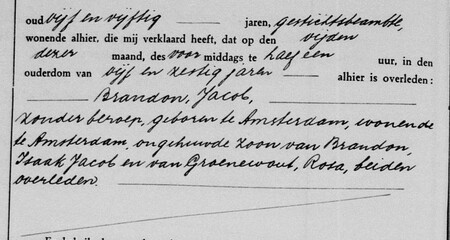 oud vijf en vijftig jaren, gestichtsbeambte,
wonende alhier, die mij verklaard heeft, dat op den vijfden
dezer maand, des voor middags te half een uur, in den
ouderdom van vijf en zestig jaren alhier is overleden:
Brandon, Jacob,
zonder beroep, geboren te Amsterdam, wonende
te Amsterdam, ongehuwde zoon van Brandon,
Isaak Jacob en van Groenewout, Rosa, beiden
overleden.